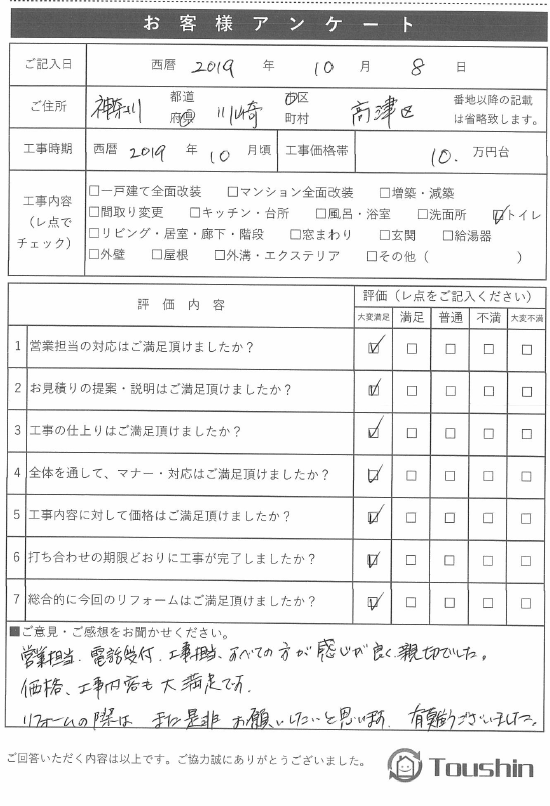 お客様アンケート
ご記入日 西暦 2019 年 10 月 8 日
ご住所 神奈川 都道府県 川崎 市区町村 高津区 番地以降の記載は省略致します。
工事時期 西暦 2019 年 10 月頃 工事価格帯 10. 万円台
工事内容（レ点でチェック）
□一戸建て全面改装 □マンション全面改装 □増築・減築
□間取り変更 □キッチン・台所 □風呂・浴室 □洗面所 ☑トイレ
□リビング・居室・廊下・階段 □窓まわり □玄関 □給湯器
□外壁 □屋根 □外溝・エクステリア □その他（ ）
評価内容 評価（レ点をご記入ください）
大変満足 満足 普通 不満 大変不満
1 営業担当の対応はご満足頂けましたか？ ☑ □ □ □ □
2 お見積りの提案・説明はご満足頂けましたか？ ☑ □ □ □ □
3 工事の仕上りはご満足頂けましたか？ ☑ □ □ □ □
4 全体を通して、マナー・対応はご満足頂けましたか？ ☑ □ □ □ □
5 工事内容に対して価格はご満足頂けましたか？ ☑ □ □ □ □
6 打ち合わせの期限どおりに工事が完了しましたか？ ☑ □ □ □ □
7 総合的に今回のリフォームはご満足頂けましたか？ ☑ □ □ □ □
■ご意見・ご感想をお聞かせください。
営業担当、電話受付、工事担当、すべての方が感じが良く、親切でした。
価格、工事内容も大満足です。
リフォームの際は また是非 お願いしたいと思います。有難うございました。
ご回答いただく内容は以上です。ご協力誠にありがとうございました。
Toushin